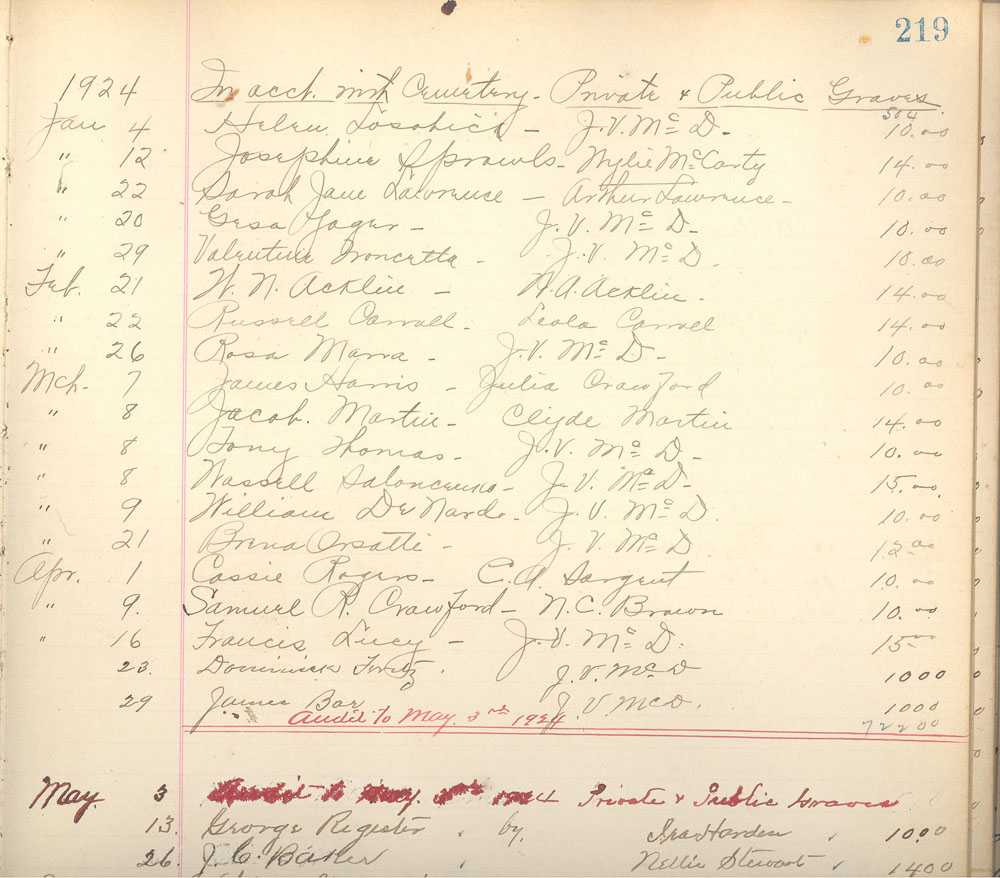 219
1924 In acct. with Cemetery - Private & Public Graves
504
Jan 4 Helen - J.V. Mc D. - 10.00
" 12 Josephine Sprowls - Wylie McCarty 14.00
" 22 Sarah Jane Lawrence - Arthur Lawrence - 10.00
" 20 Gesa Yager - J.V. Mc D. 10.00
" 29 Valentine Ironcetta - J.V. Mc D. 10.00
Feb. 21 W. N. Acklin - H.A. Acklin. 14.00
" 22 Russell Carroll. Leola Carroll 14.00
" 26 Rosa Marra - J.V. Mc D - 10.00
Mch. 7 James Harris - Julia Crawford 10.00
" 8 Jacob. Martin - Clyde Martin 14.00
" 8 Tony Thomas. J.V. Mc D - 10.00
" 8 Wassell - J.V. Mc D - 15.00
" 9 William De Nardo. J.V. Mc D. 10.00
" 21 Orsatti - J.V. Mc D 12.00
Apr. 1 Cassie Rogers - Sargent 10.00
" 9. Samuel R. Crawford - N.C. Brown 10.00
" 16 Francis Lucy - J.V. Mc D. 15.00
23. Dominick J.V. Mc D 1000
29 James Bar J.V McD. 1000
Audit to May. 3rd 1924 72200
May 3 Audit to May. 3rd 1924 Private & Public Graves
13. George Register, by, Ira Harden, 1000
26. J.C. Baker, Nellie Stewart, 1400